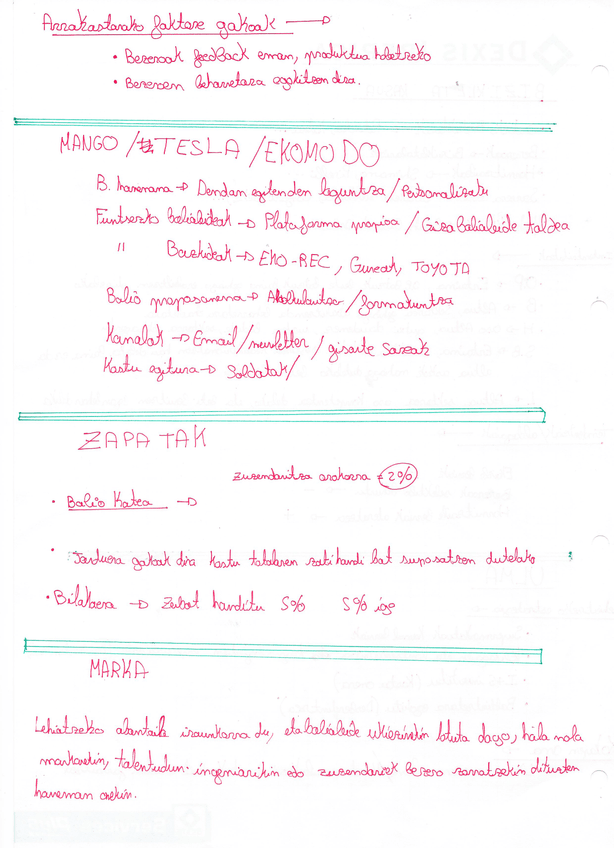 Arrakastarako faktore gakoak →
• Bezeroak feedback eman, produktua hobetzeko
• Bezeroen beharretara egokitzen dira.
MANGO / TESLA / EKOMODO
B. harremana → Dendan egitenden laguntza / Pertsonalizatu
Funtsezko baliabideak → Plataforma propioa / Giza baliabide taldea
" Bazkideak → EKO-REC, Gureak, TOYOTA
Balio proposamena → Aholkularitza / formakuntza
Kanalak → Email / newsletter / gizarte sareak
Kostu egitura → Soldatak /
ZAPATAK
zuzendaritza orokorra = 2%
• Balio Katea →
• Jarduera gakoak dira kostu totalaren zati handi bat suposatzen dutelako
• Bilakaera → Zenbat handitu 5% 5% igo
MARKA
Lehiatzeko abantaila iraunkorra du, eta baliabide lotuta dago, hala nola
markarekin, talentudun ingeniarikin edo zuzendariek bezero zarratzekin dituzten
harreman onekin.